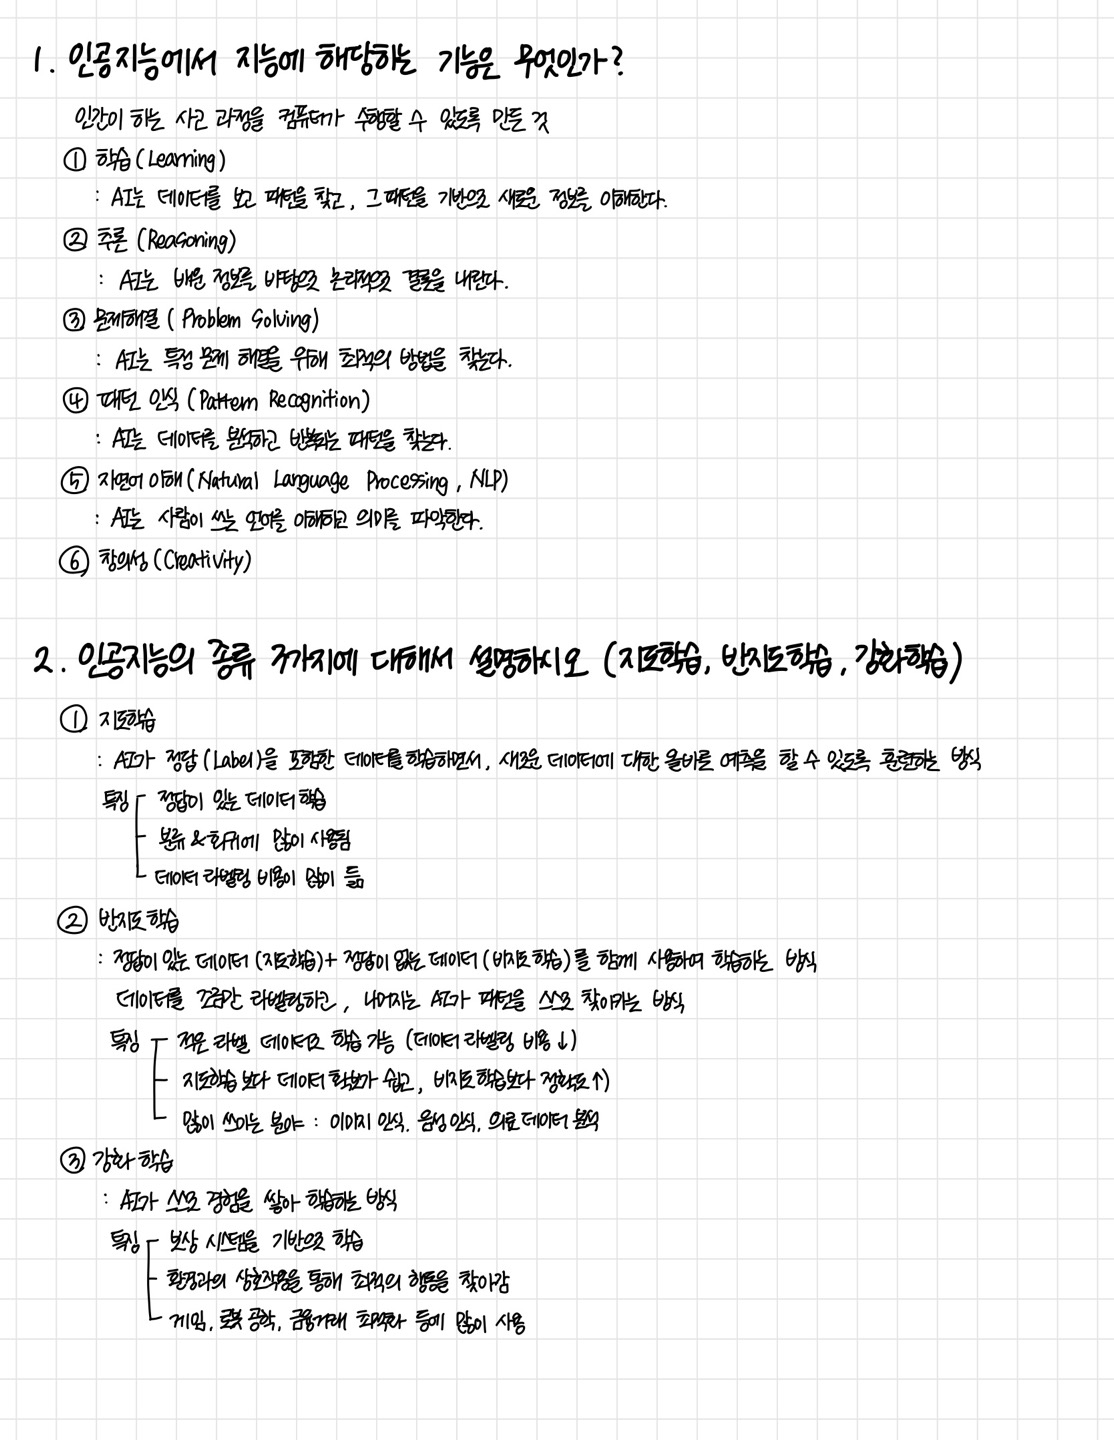 1. 인공지능에서 지능에 해당하는 기능은 무엇인가?
인간이 하는 사고 과정을 컴퓨터가 수행할 수 있도록 만든 것
① 학습(Learning)
: AI는 데이터를 보고 패턴을 찾고, 그 패턴을 기반으로 새로운 정보를 이해한다.
② 추론 (Reasoning)
: AI는 배운 정보를 바탕으로 논리적으로 결론을 내린다.
③ 문제해결 ( Problem Solving)
: AI는 특정 문제 해결을 위해 최적의 방법을 찾는다.
④ 패턴 인식 (Pattern Recognition)
: AI는 데이터를 분석하고 반복되는 패턴을 찾는다.
⑤ 자연어 이해(Natural Language Processing, NLP)
: AI는 사람이 쓰는 언어를 이해하고 의미를 파악한다.
⑥ 창의성 (Creativity)
2. 인공지능의 종류 3가지에 대해서 설명하시오 (지도학습, 반지도학습, 강화학습)
① 지도학습
: AI가 정답 (Label)을 포함한 데이터를 학습하면서, 새로운 데이터에 대한 올바른 예측을 할 수 있도록 훈련하는 방식
특징 정답이 있는 데이터 학습
분류 & 회귀에 많이 사용됨
데이터 라벨링 비용이 많이 듦
② 반지도학습
: 정답이 있는 데이터 (지도학습) + 정답이 없는 데이터 (비지도학습)를 함께 사용하여 학습하는 방식
데이터를 조금만 라벨링하고, 나머지는 AI가 패턴을 스스로 찾아가는 방식
특징 적은 라벨 데이터로 학습 가능 (데이터 라벨링 비용 ↓)
지도학습보다 데이터 확보가 쉽고, 비지도학습보다 정확도 ↑)
많이 쓰이는 분야 : 이미지 인식, 음성 인식, 의료 데이터 분석
③ 강화 학습
: AI가 스스로 경험을 쌓아 학습하는 방식
특징 보상 시스템을 기반으로 학습
환경과의 상호작용을 통해 최적의 행동을 찾아감
게임, 로봇 공학, 금융거래 최적화 등에 많이 사용